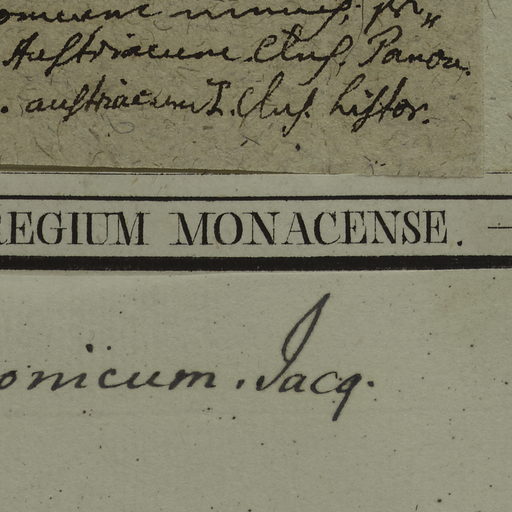 minus, pr„
Austriacum Clus. Panon.
. austriacum I. Clus. histor.
REGIUM MONACENSE.
onicum. Jacq.